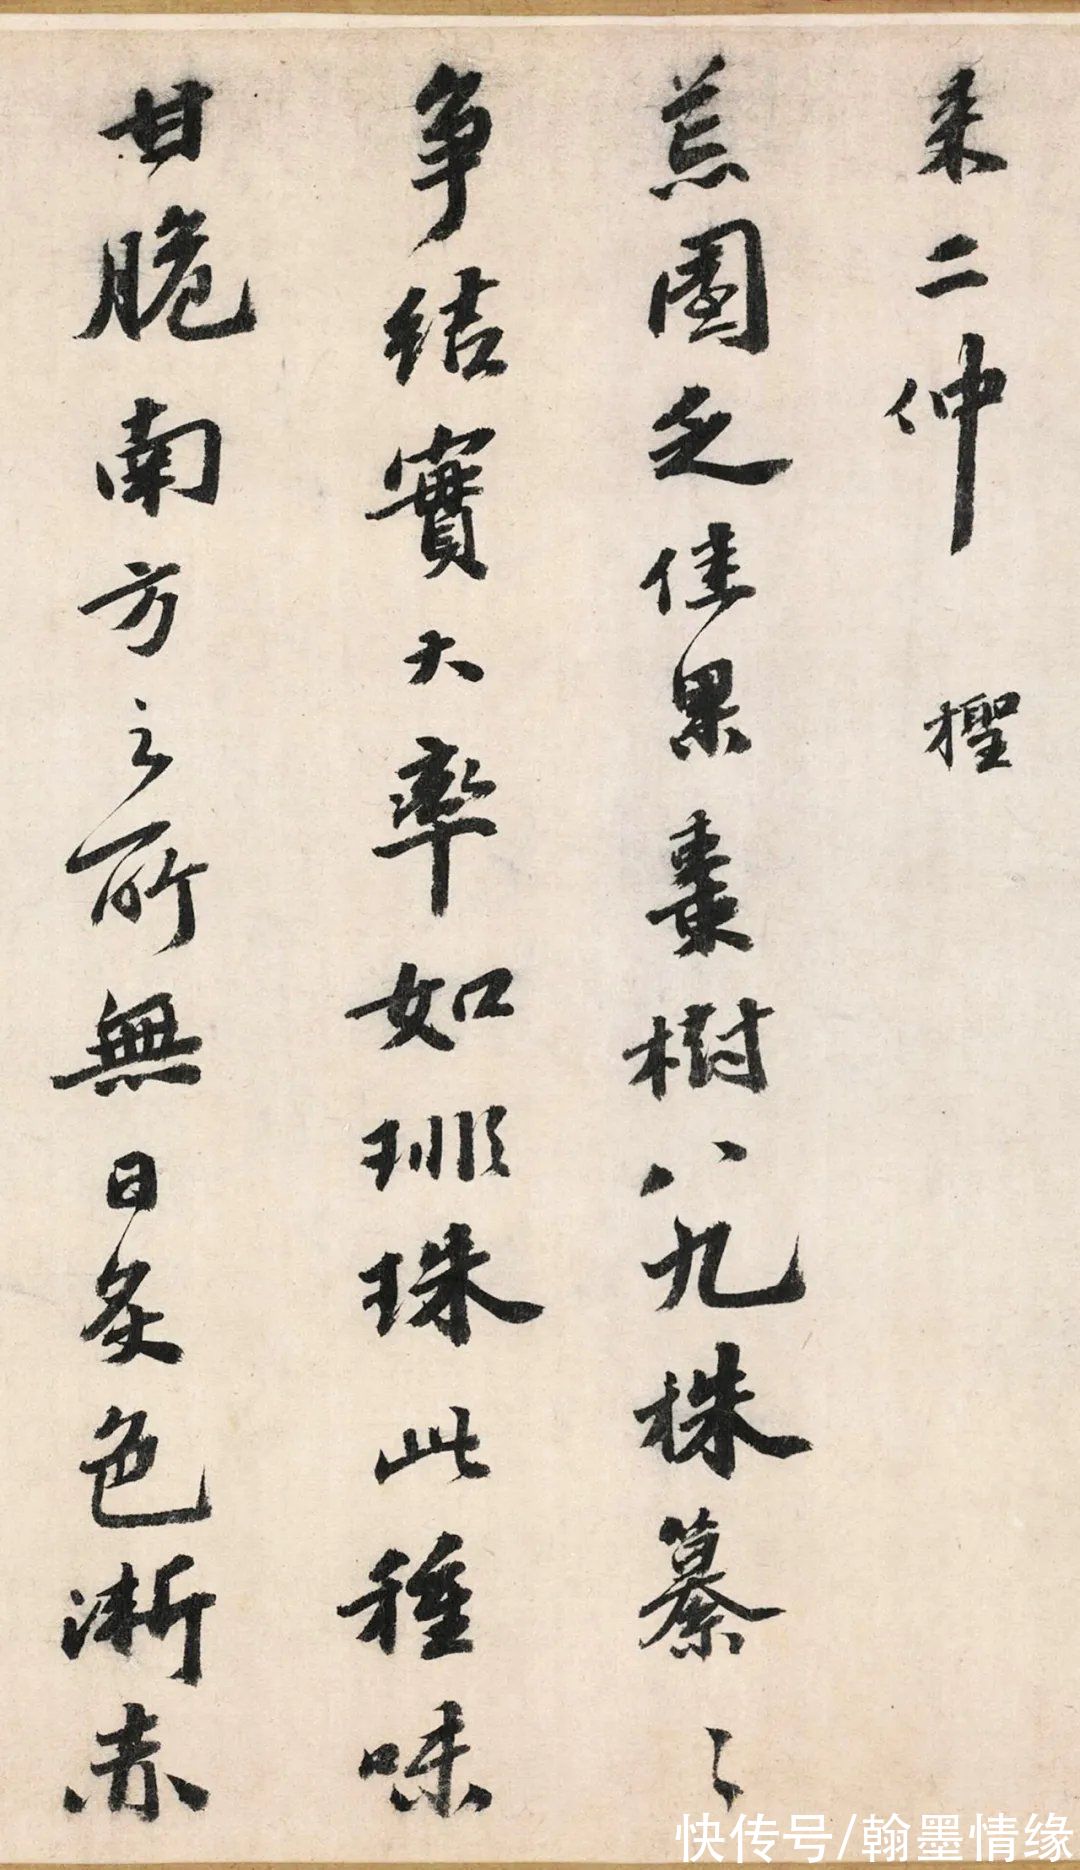 来二仲 檉
荒園乏佳果棗樹八九株纂〻
争結實大率如琲珠此種味
甘脆南方之所無日炙色漸赤
快传号/翰墨情缘